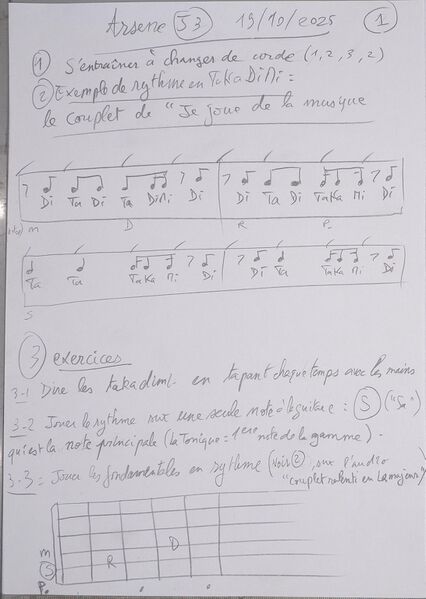 Arsene S3 19/10/2025 1
1 S'entraîner à changer de corde (1, 2, 3, 2)
2 Exemple de rythme en TaKaDiMi =
le couplet de "Je joue de la musique
7 Di Ta Di Ta DiMi 7 Di Di Ta Di TaKa Mi Di
m D R P.
Ta Ta TaKa Mi 7 Di Di Ta TaKa Mi 7 Di
S
3 exercices
3-1 Dire les takadimi en tapant chaque temps avec les mains
3-2 Jouer le rythme sur une seule note à la guitare : S ("Sa")
qui est la note principale (la Tonique = 1ere note de la gamme).
3-3 = Jouer les fondamentales en rythme (voir 2, sur l'audio
"couplet ralenti en La majeur")
m
S R D
P.